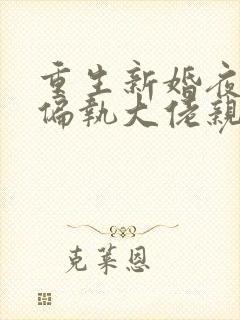 重生新婚夜
偏执大佬親
克莱恩